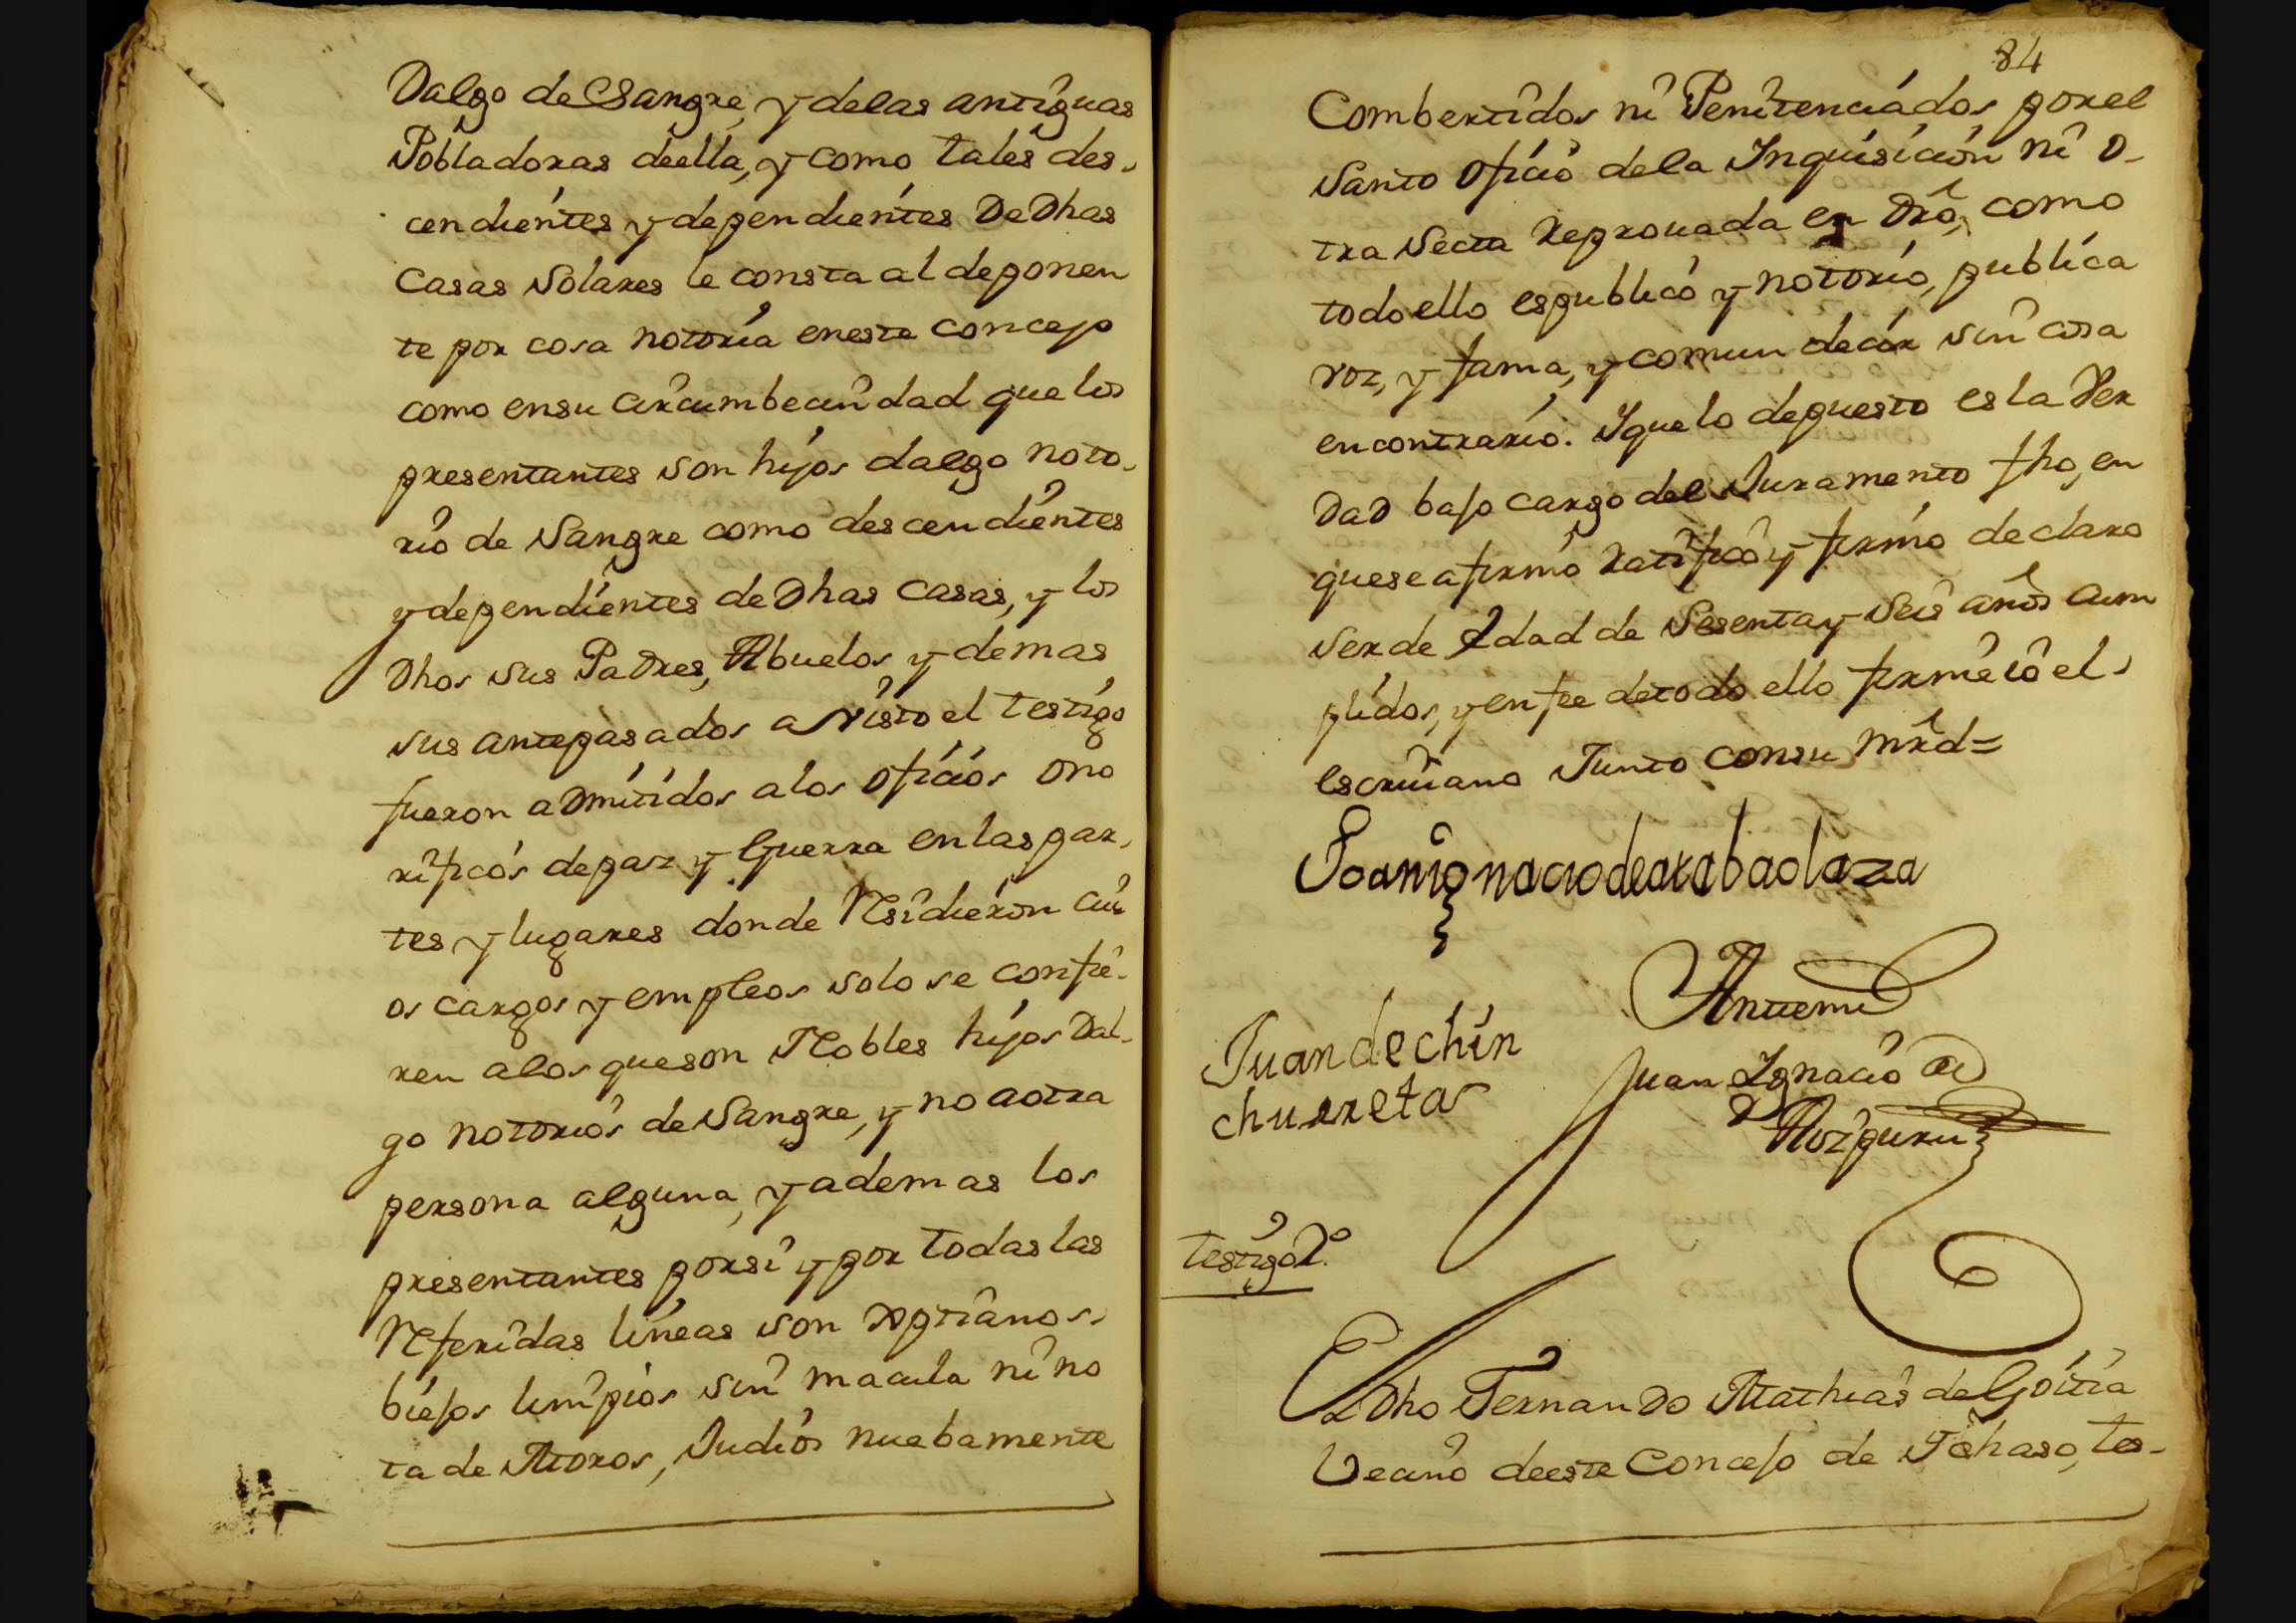 Dalgo de Sangre, y delas antiguas
Pobladoras deella, y como tales des-
cendientes y dependientes De Dhas
Casas Solares le consta al deponen
te por cosa notoria eneste concejo
como ensu circumbecindad que los
presentantes son hijos dalgo noto-
rio de Sangre como descendientes
y dependientes de Dhas Casas, y los
Dhos sus Padres, Abuelos y demas
sus antepasados a visto el testigo
fueron aDmitidos alos oficios ono
rificos depaz y Guerra enlas par-
tes y lugares donde Residieron cui
os cargos y empleos solo se confie-
ren alos queson Nobles hijos Dal-
go notorios de Sangre, y no aotra
persona alguna, y ademas los
presentantes porsi y por todas las
Referidas lineas son Xptianos
biejos limpios sin macula ni no
ta de Moros, Judios nuebamente
84
Combertidos ni Penitenciados porel
Santo oficio dela Inquisicion ni o-
tra Secta Reprouada en Dro, como
todo ello espublico y notorio, publica
voz, y fama, y comun decir sin cosa
en contrario. Y quelo depuesto es la Ver
DaD bajo cargo del Juramento fho, en
quese afirmó Ratificó y firmó declaro
Serde Edad de Sesenta y Seis años Cum
plidos, y enfee detodo ello firmé Yó el
escriuano Junto consu mrd=
Joanignaciodearabaolaza
Antemi
Juan de chin
churreta
Juan Ignacio de
Aozpuru
testigo 2º
El Dho Fernando Mathias de Goitia
Vecino deeste Concejo de Tohaso, tes-